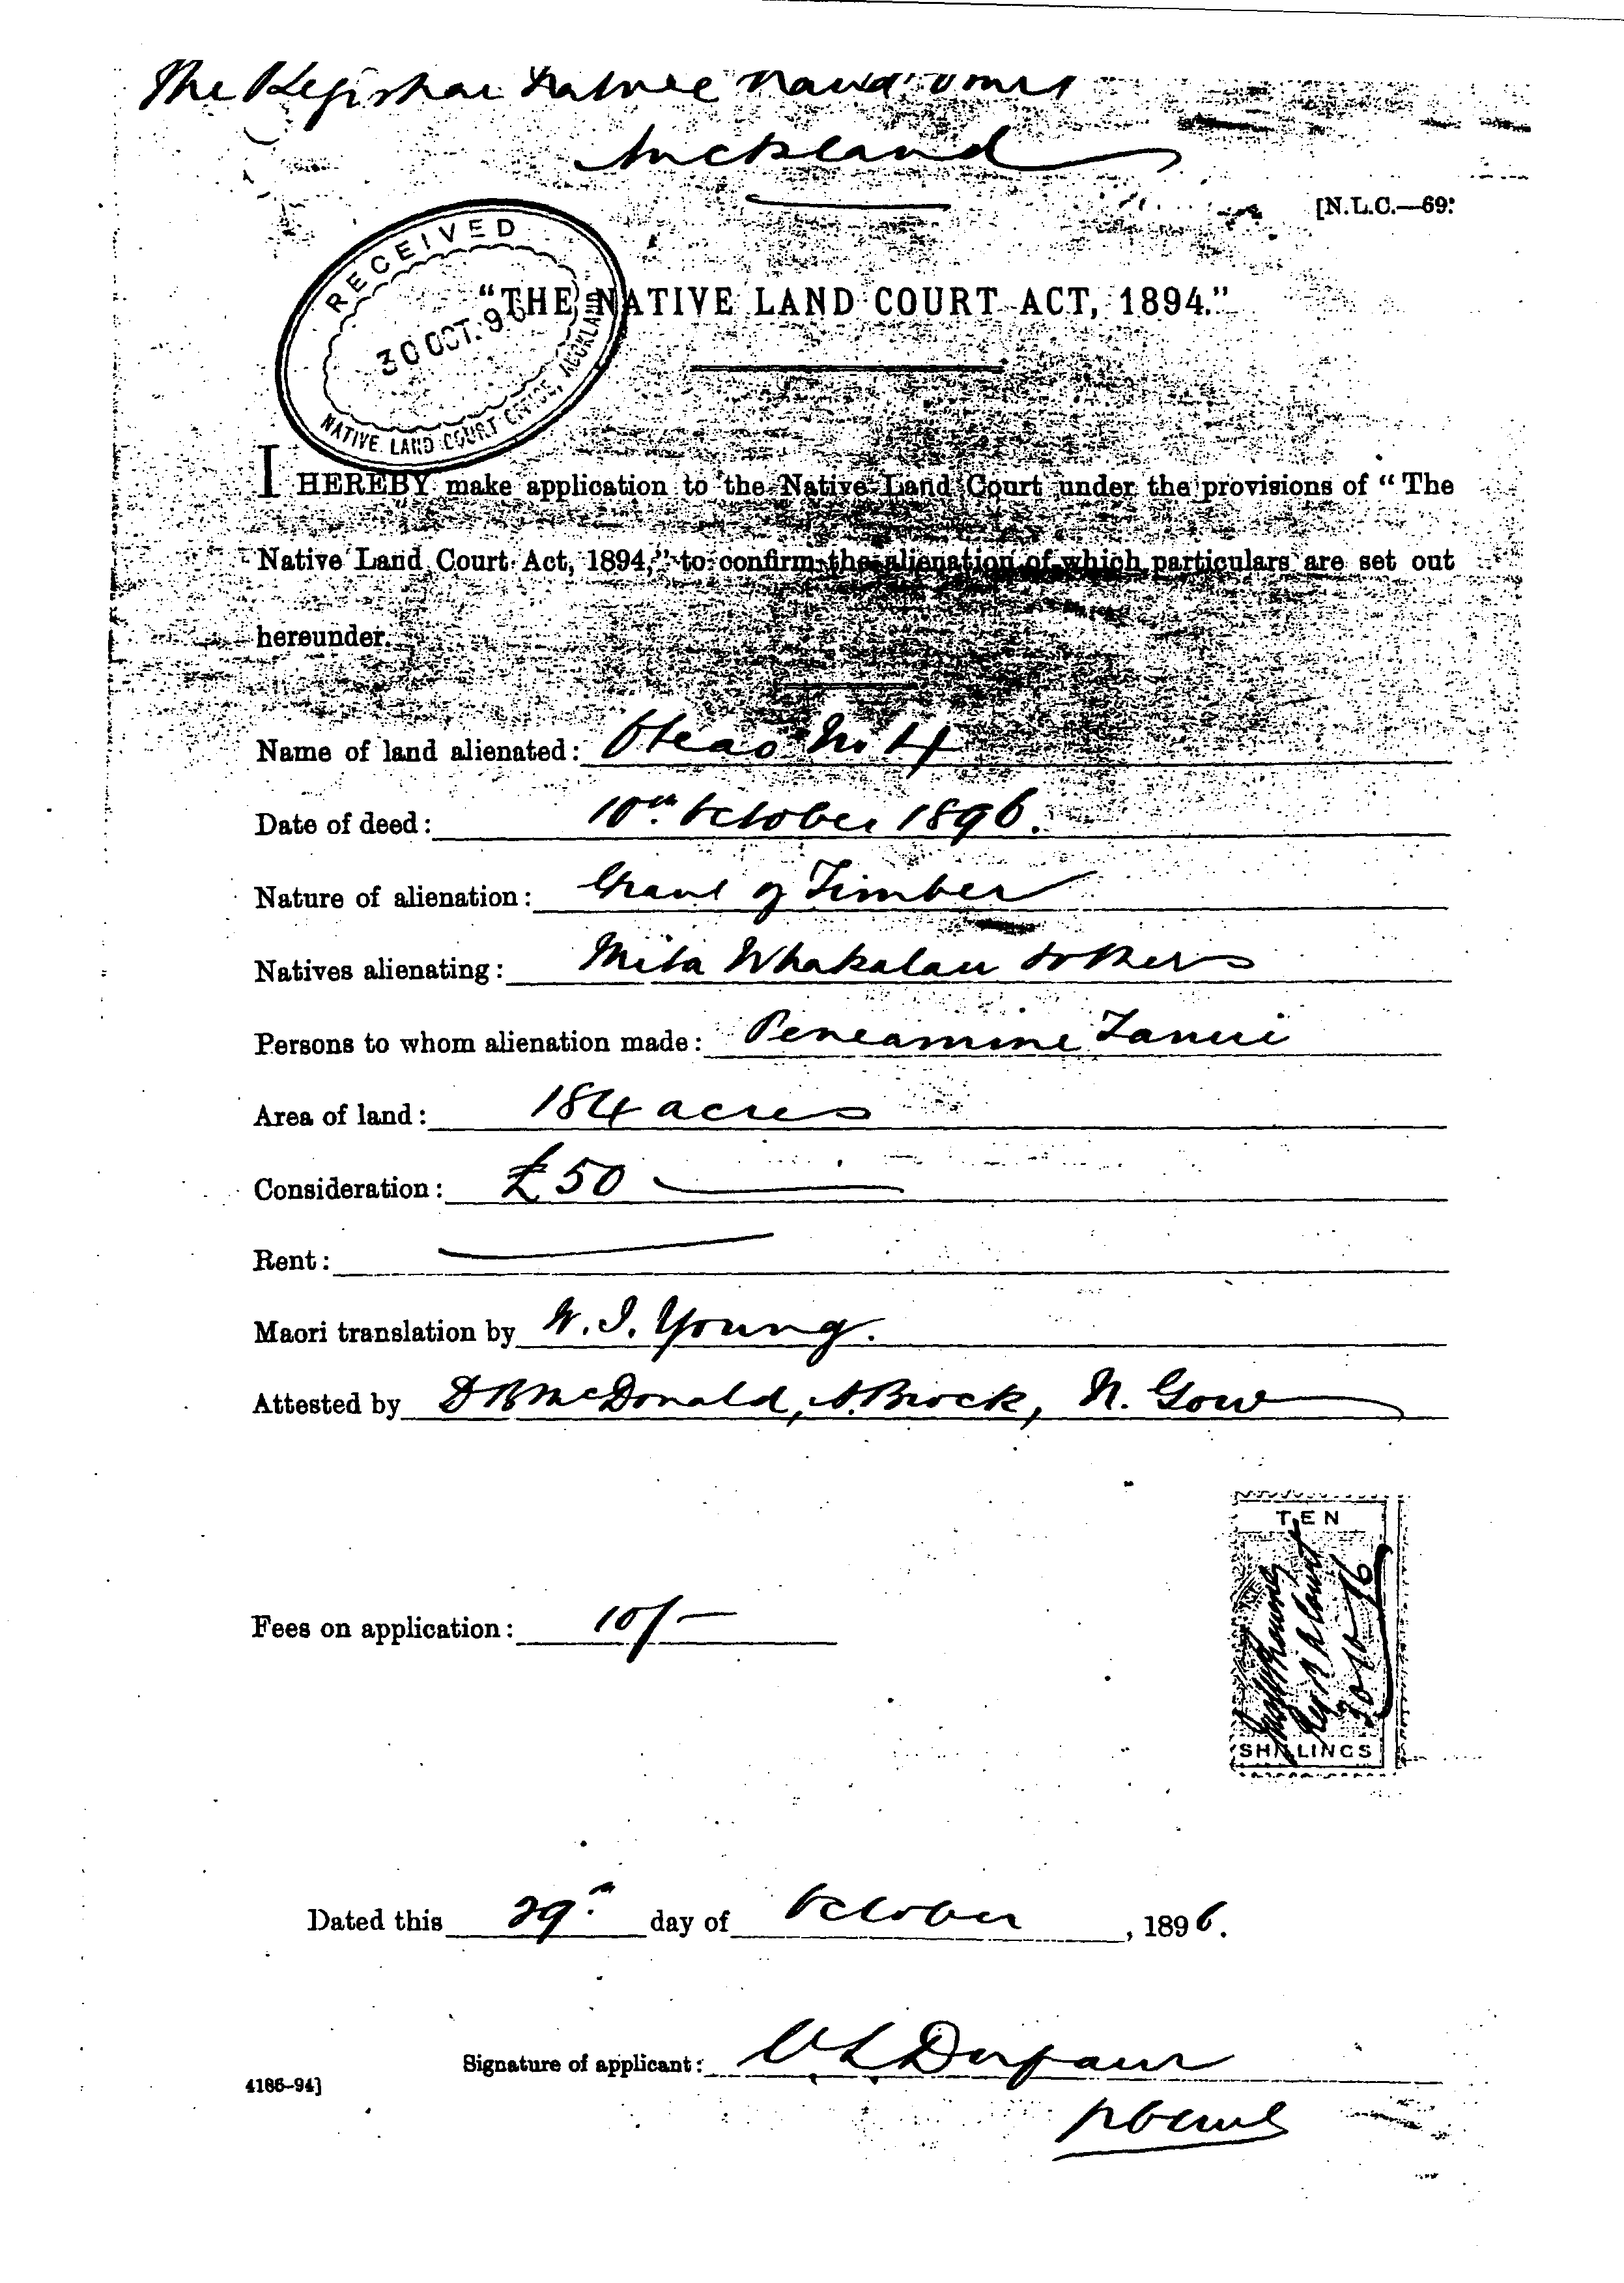 The Registrar Native Land Court
Auckland
[N.L.C.—69.
RECEIVED
30 OCT. 96
NATIVE LAND COURT OFFICE, AUCKLAND
"THE NATIVE LAND COURT ACT, 1894."
I HEREBY make application to the Native Land Court under the provisions of "The
Native Land Court Act, 1894," to confirm the alienation of which particulars are set out
hereunder.
Name of land alienated: Oteao No 4
Date of deed: 10th October 1896.
Nature of alienation: Grant of Timber
Natives alienating: Mita Whakatau & others
Persons to whom alienation made: Peneamine Tanui
Area of land: 184 acres
Consideration: £50
Rent:
Maori translation by W. J. Young.
Attested by D B McDonald, A. Brock, N. Gow
TEN
Reg N L Court
30 10 96
SHILLINGS
Fees on application: 10/-
Dated this 29th day of October, 1896.
Signature of applicant: C L Dufaur
4186-94]